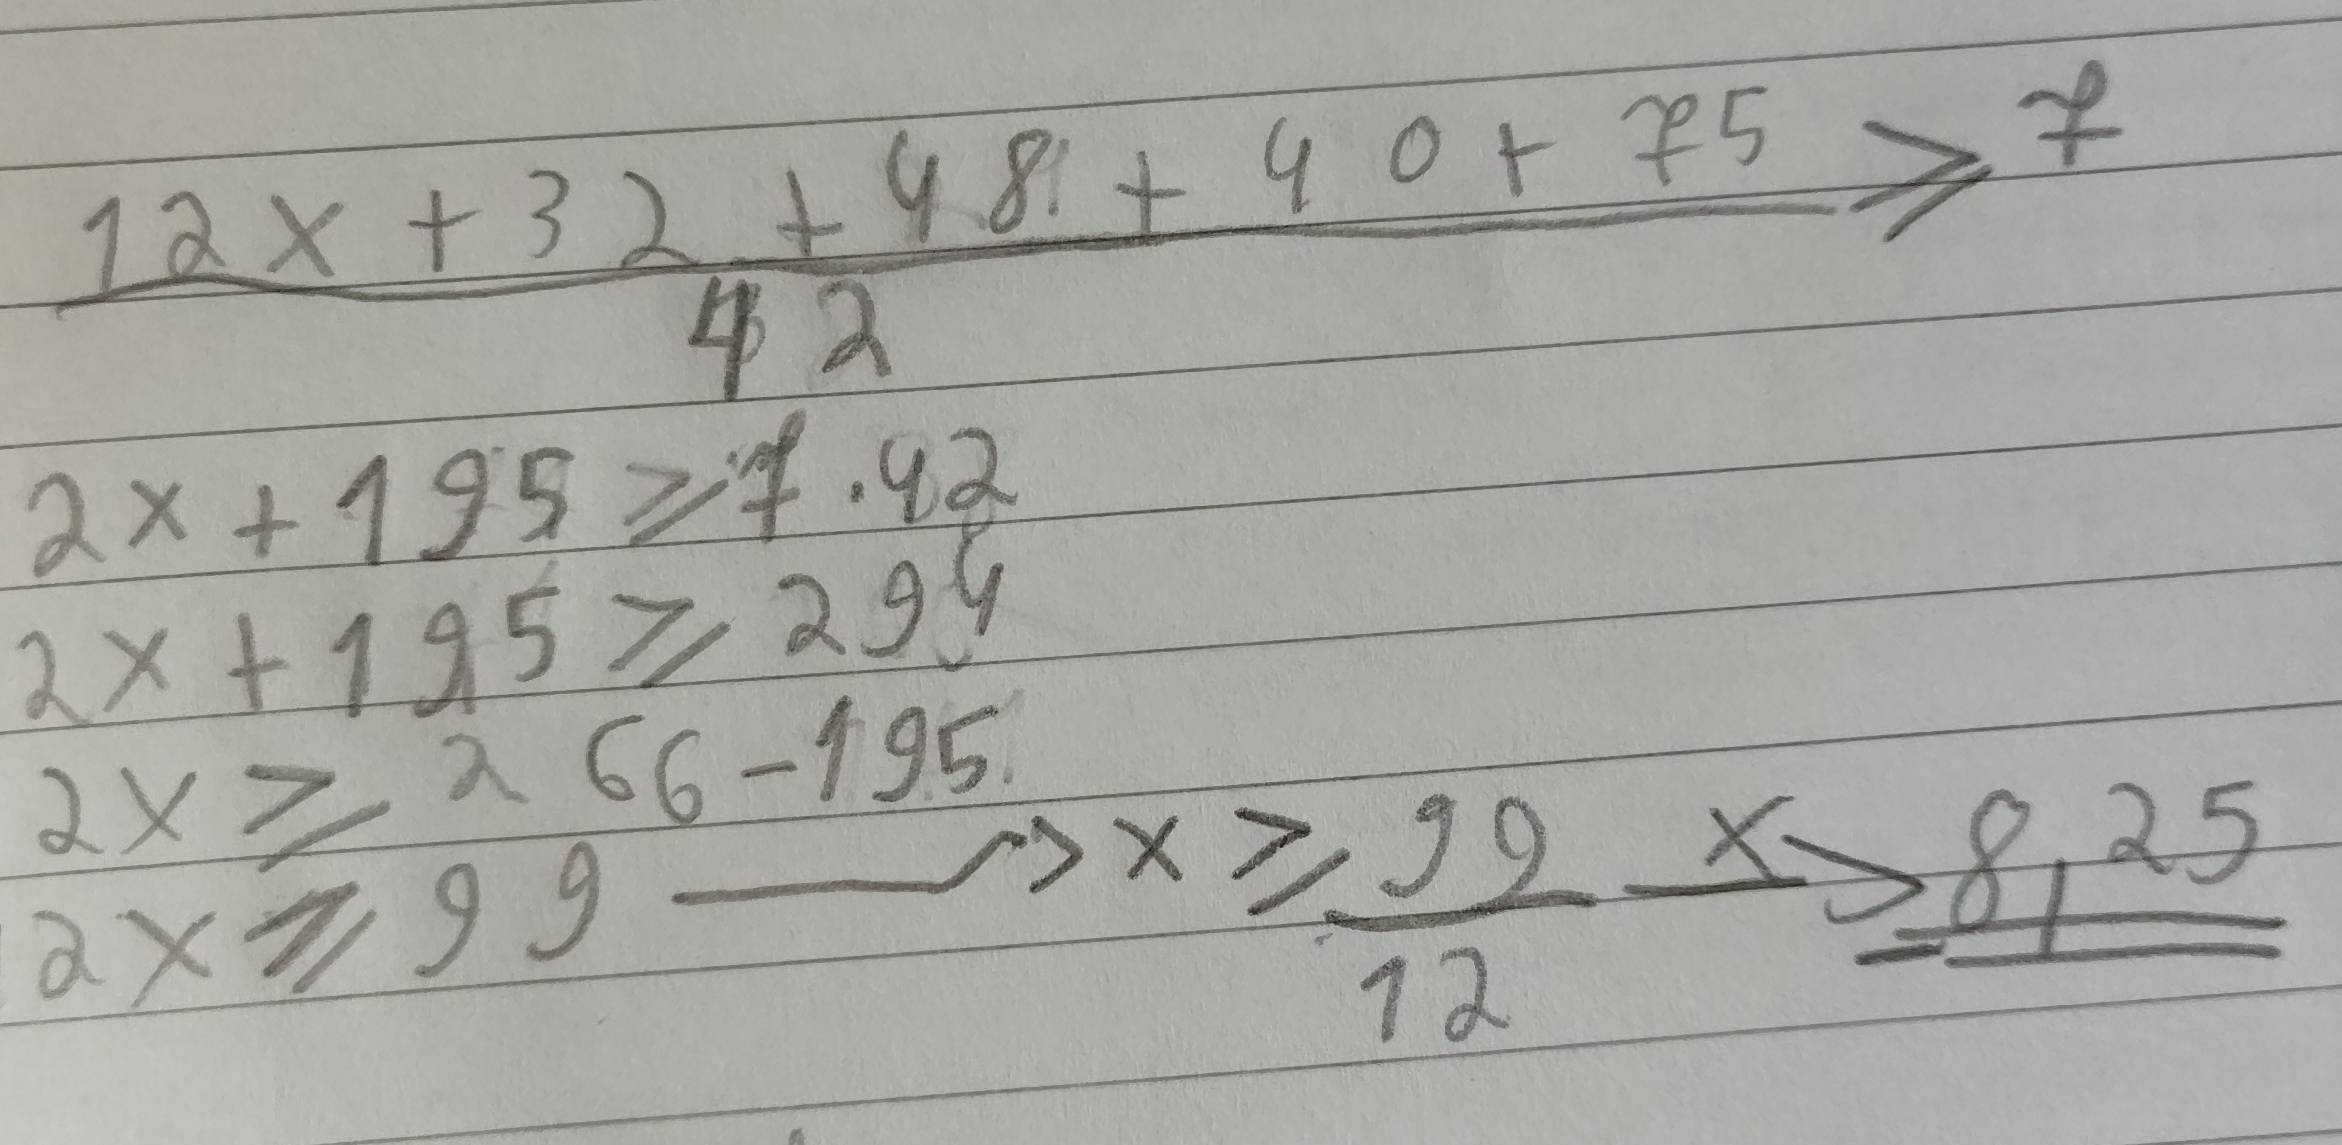 12x + 32 + 48 + 40 + 75 ≥ 7
42
2x + 195 ≥ 7 . 42
2x + 195 ≥ 294
2x ≥ 266 - 195
2x ≥ 99 → x ≥ 99 x ≥ 8,25
12